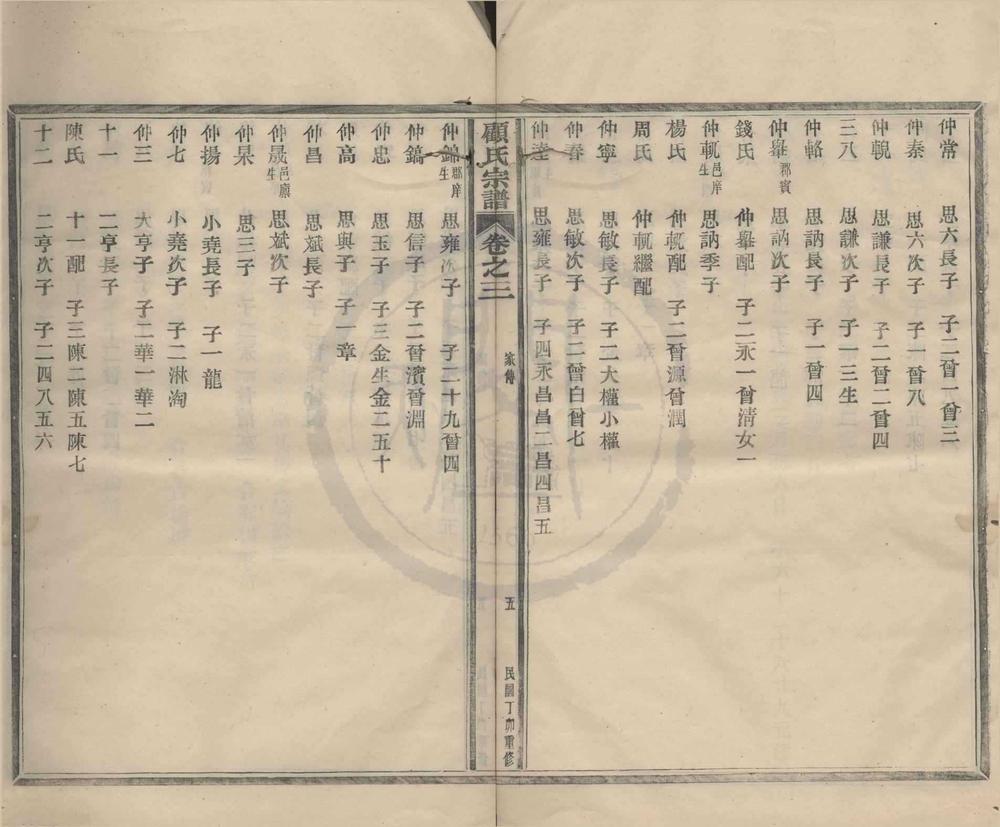 仲常 思六長子 子二晉一晉三
仲泰 思六次子 子一晉八
仲輗 思謙長子 子二晉二晉四
三八 思謙次子 子一三生
仲輅 思訥長子 子一晉四
仲舉郡賓 思訥次子
錢氏 仲舉配 子二永一晉淸女一
仲軏邑庠生 思訥季子
楊氏 仲軏配 子二晉源晉潤
周氏 仲軏繼配
仲寧 思敏長子 子二大權小權
仲春 思敏次子 子二晉白晉七
仲逵 思雍長子 子四永昌昌二昌四昌五
顧氏宗譜 卷之三 家傳 五 民國丁卯重修
仲錦郡庠生 思雍次子 子二十九晉四
仲鎬 思信子 子二晉濱晉淵
仲忠 思玉子 子三金生金二五十
仲高 思與子 子一章
仲昌 思斌長子
仲晟邑廩生 思斌次子
仲杲 思三子
仲揚 小堯長子 子一龍
仲七 小堯次子 子二淋淘
仲三 大亨子 子二華一華二
十一 二亨長子
陳氏 十一配 子三陳二陳五陳七
十二 二亨次子 子二四八五六